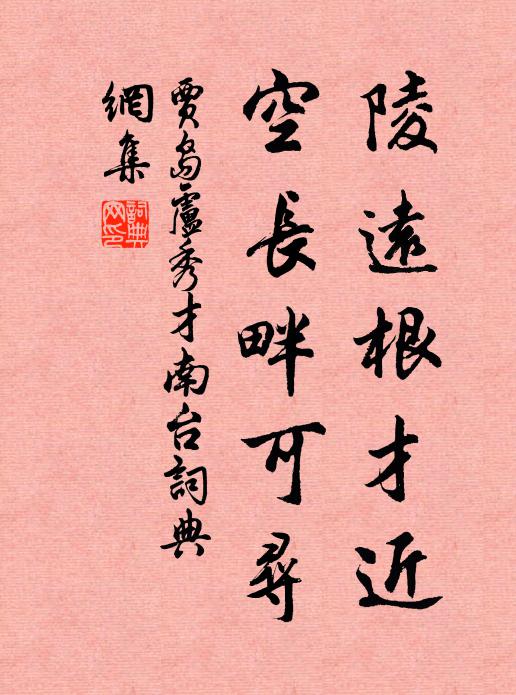 陵遠根才近
空長畔可尋
賈島盧秀才南台詞典
網集
詞典網印